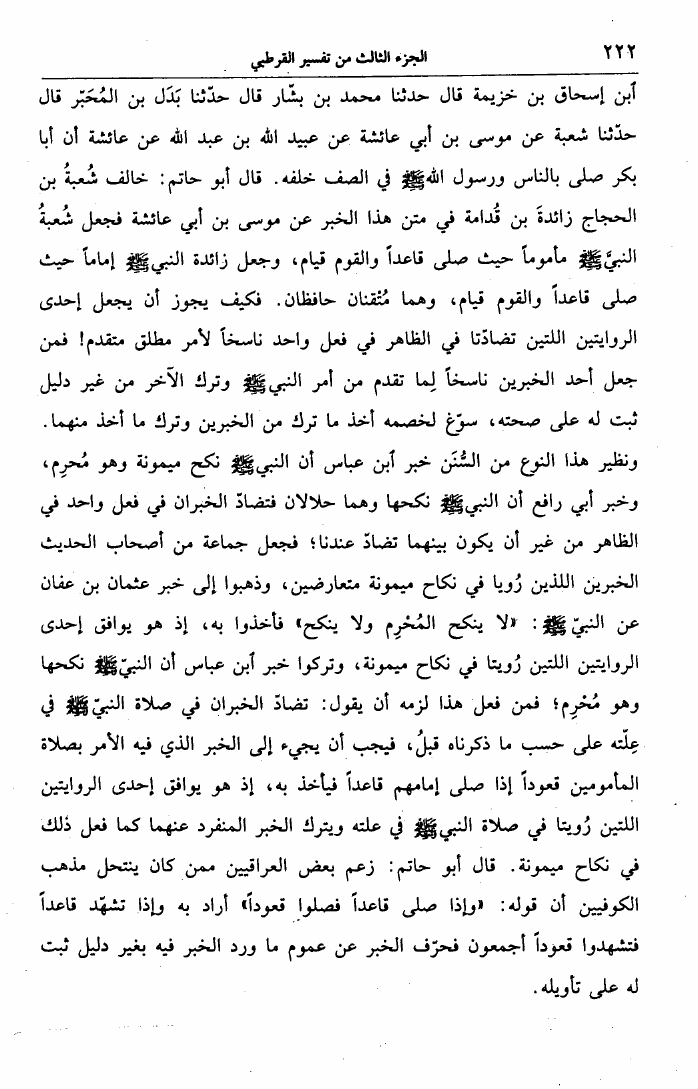 ٢٢٢
الجزء الثالث من تفسير القرطبي
ٱبن إسحاق بن خزيمة قال حدثنا محمد بن بشّار قال حدّثنا بَدَل بن المُحَبّر قال
حدّثنا شعبة عن موسى بن أبي عائشة عن عبيد الله بن عبد الله عن عائشة أن أبا
بكر صلى بالناس ورسول الله ﷺ في الصف خلفه. قال أبو حاتم: خالف شُعبةُ بن
الحجاج زائدةَ بن قُدامة في متن هذا الخبر عن موسى بن أبي عائشة فجعل شُعبةُ
النبيَّ ﷺ مأموماً حيث صلى قاعداً والقوم قيام، وجعل زائدة النبيّ ﷺ إماماً حيث
صلى قاعداً والقوم قيام، وهما مُتْقنان حافظان. فكيف يجوز أن يجعل إحدى
الروايتين اللتين تضادّتا في الظاهر في فعل واحد ناسخاً لأمر مطلق متقدم! فمن
جعل أحد الخبرين ناسخاً لِما تقدم من أمر النبيّ ﷺ وترك الآخر من غير دليل
ثبت له على صحته، سوّغ لخصمه أخذ ما ترك من الخبرين وترك ما أخذ منهما.
ونظير هذا النوع من السُّنَن خبر ٱبن عباس أن النبيّ ﷺ نكح ميمونة وهو مُحرِم،
وخبر أبي رافع أن النبيّ ﷺ نكحها وهما حلالان فتضادّ الخبران في فعل واحد في
الظاهر من غير أن يكون بينهما تضادّ عندنا؛ فجعل جماعة من أصحاب الحديث
الخبرين اللذين رُويا في نكاح ميمونة متعارضين، وذهبوا إلى خبر عثمان بن عفان
عن النبيّ ﷺ: «لا ينكح المُحْرِم ولا ينكح» فأخذوا به، إذ هو يوافق إحدى
الروايتين اللتين رُويتا في نكاح ميمونة، وتركوا خبر ٱبن عباس أن النبيّ ﷺ نكحها
وهو مُحْرِم؛ فمن فعل هذا لزمه أن يقول: تضادّ الخبران في صلاة النبيّ ﷺ في
عِلّته على حسب ما ذكرناه قبلُ، فيجب أن يجيء إلى الخبر الذي فيه الأمر بصلاة
المأمومين قعوداً إذا صلى إمامهم قاعداً فيأخذ به، إذ هو يوافق إحدى الروايتين
اللتين رُويتا في صلاة النبيّ ﷺ في علته ويترك الخبر المنفرد عنهما كما فعل ذلك
في نكاح ميمونة. قال أبو حاتم: زعم بعض العراقيين ممن كان ينتحل مذهب
الكوفيين أن قوله: «وإذا صلى قاعداً فصلوا قعوداً» أراد به وإذا تشهّد قاعداً
فتشهدوا قعوداً أجمعون فحرّف الخبر عن عموم ما ورد الخبر فيه بغير دليل ثبت
له على تأويله.